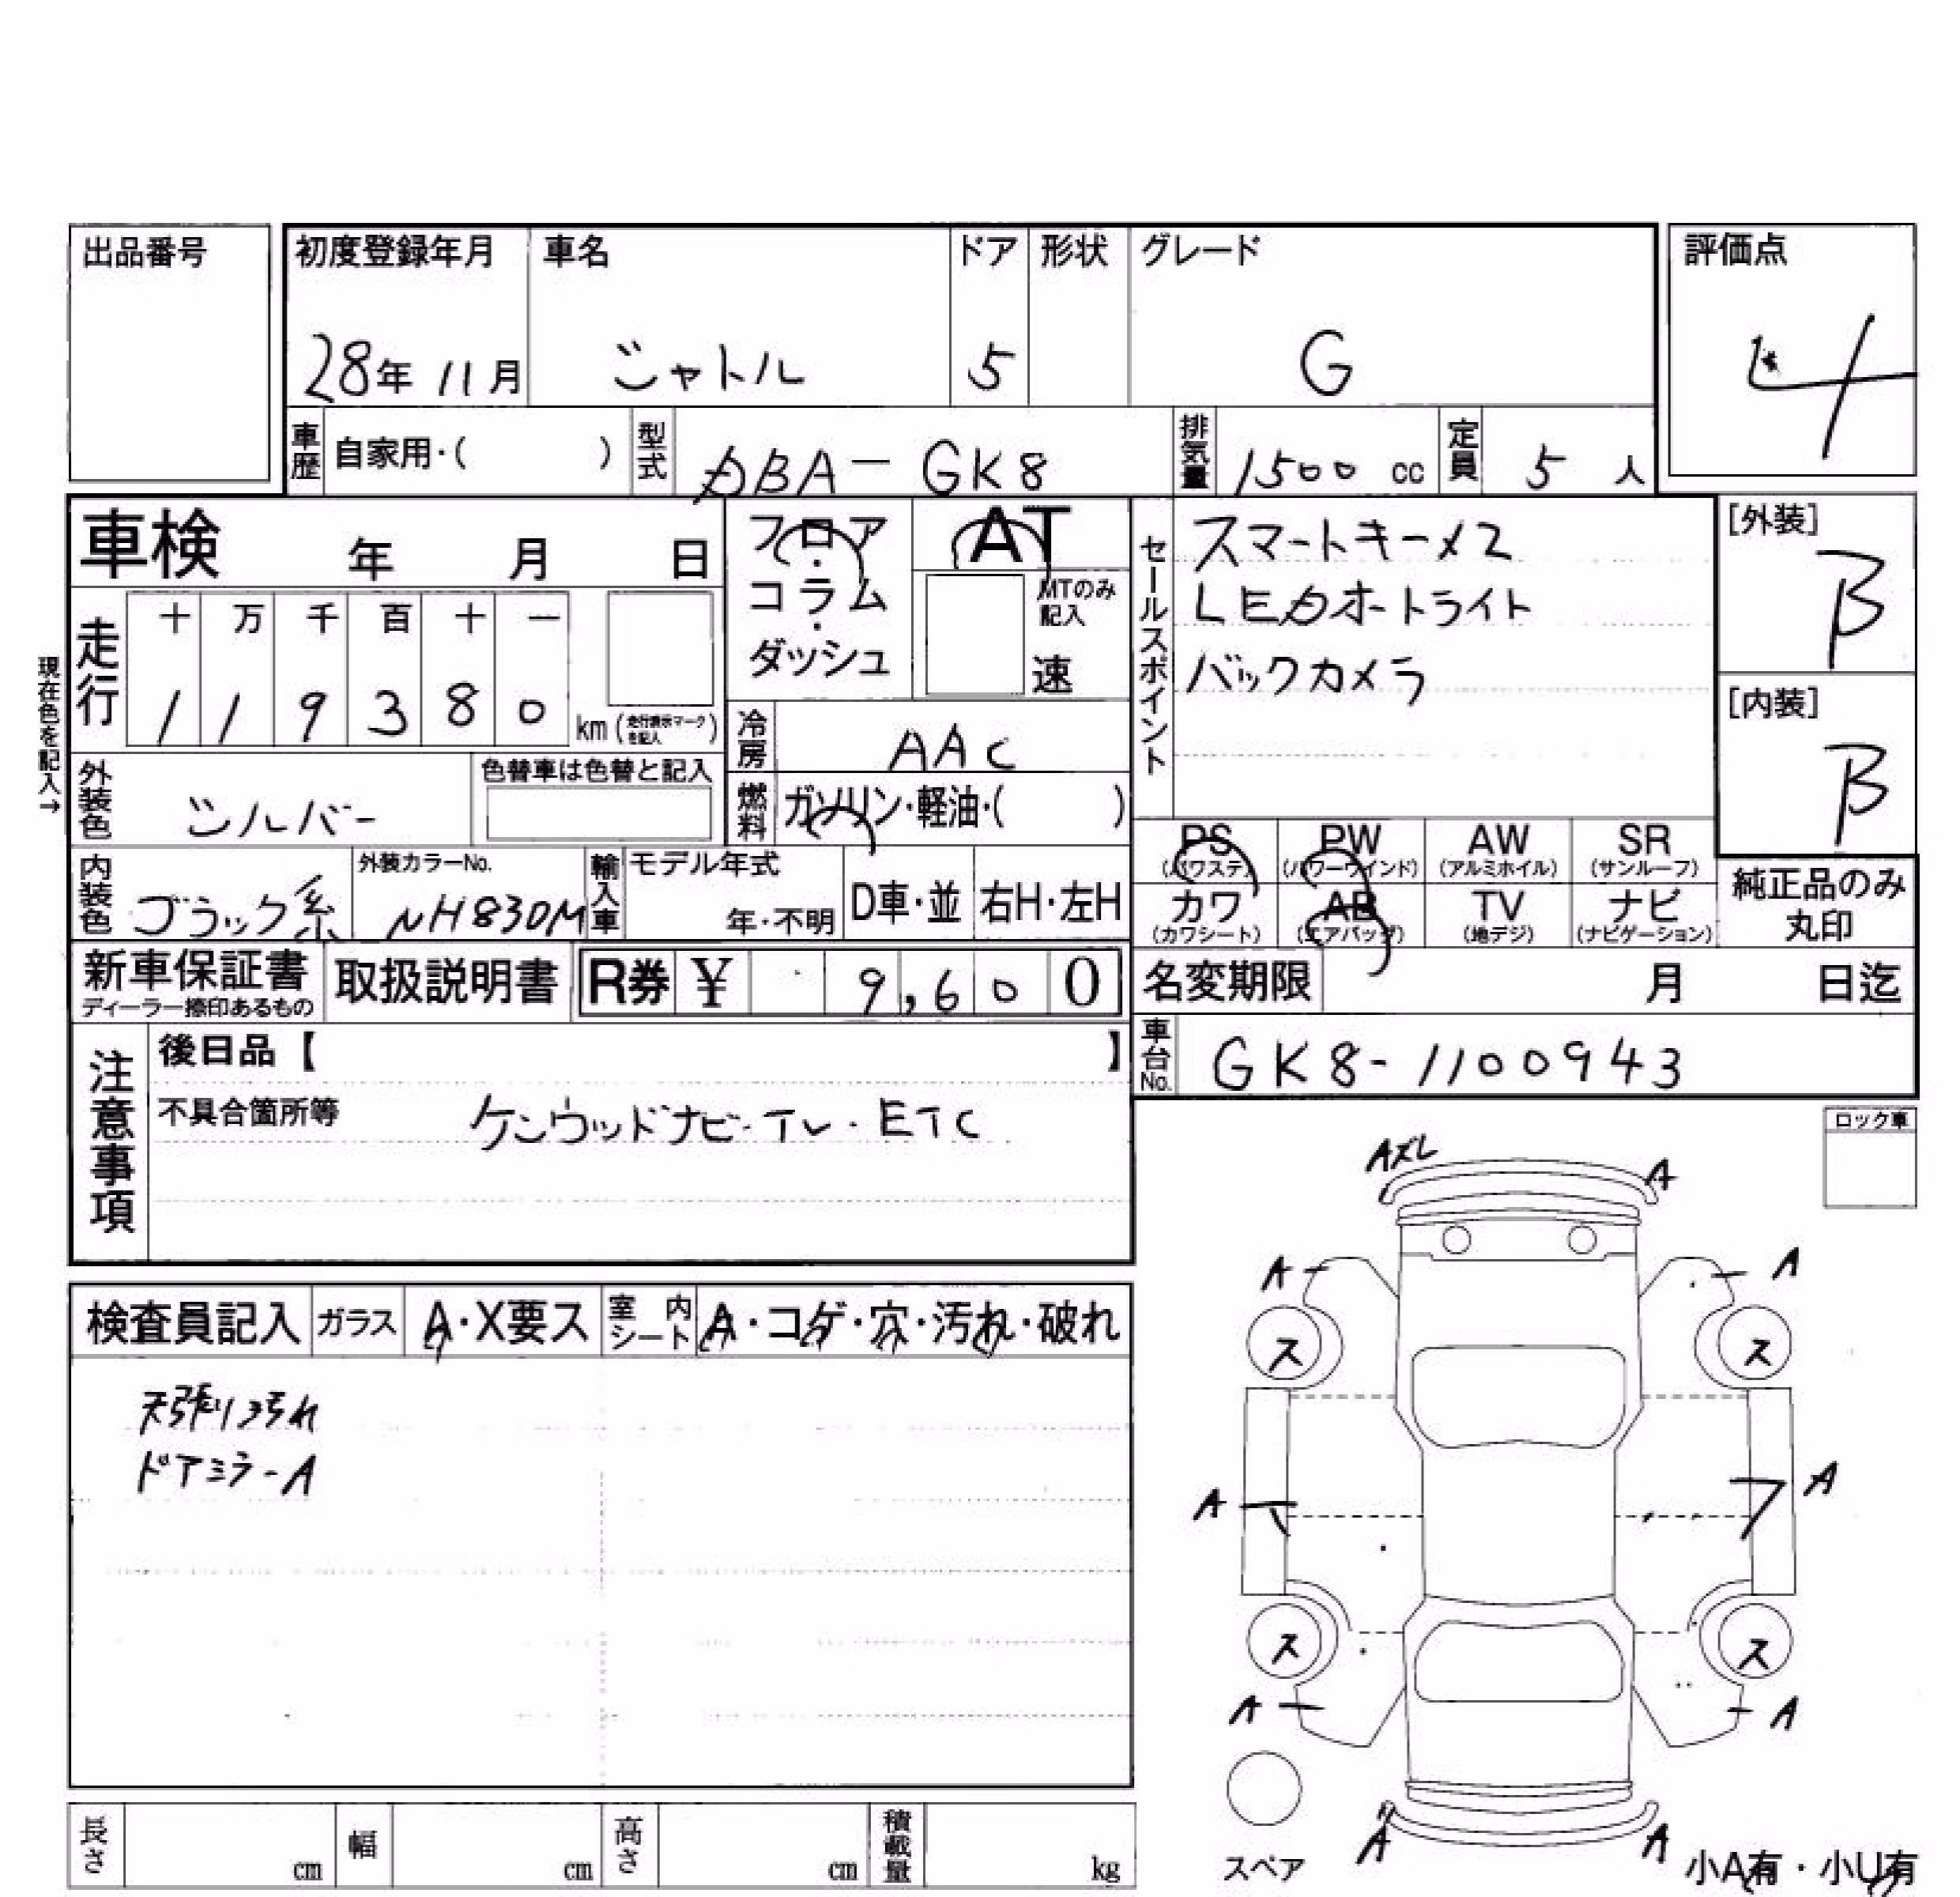 出品番号
初度登録年月 車名 ドア 形状 グレード 評価点
28年 11月 シャトル 5 G 4
車歴 自家用・( ) 型式 DBA-GK8 排気量 1500 cc 定員 5 人
車検 年 月 日
フロア・コラム・ダッシュ
AT
MTのみ記入
速
セールスポイント
スマートキー×2
LEDオートライト
バックカメラ
[外装]
B
[内装]
B
現在色を記入→
走行 十 万 千 百 十 一
1 1 9 3 8 0 km (走行表示マークを記入)
冷房 AAC
外装色 シルバー 色替車は色替と記入
燃料 ガソリン・軽油・( )
PS (パワステ) PW (パワーウインド) AW (アルミホイル) SR (サンルーフ)
カワ (カワシート) AB (エアバッグ) TV (地デジ) ナビ (ナビゲーション)
純正品のみ丸印
内装色 ブラック系 外装カラーNo. NH830M 輸入車 モデル年式 年・不明 D車・並 右H・左H
新車保証書 ディーラー捺印あるもの 取扱説明書 R券 ¥ 9,600 名変期限 月 日迄
注意事項
後日品【 】
車台No. GK8-1100943
不具合箇所等 ケンウッドナビ・TV・ETC
ロック車
Aズレ A
A A
検査員記入 ガラス A・X要ス 室内シート A・コゲ・穴・汚れ・破れ
ス ス
天張り汚れ
ドアミラーA
A A
ス ス
A A
長さ cm 幅 cm 高さ cm 積載量 kg
スペア
A A
小A有・小U有